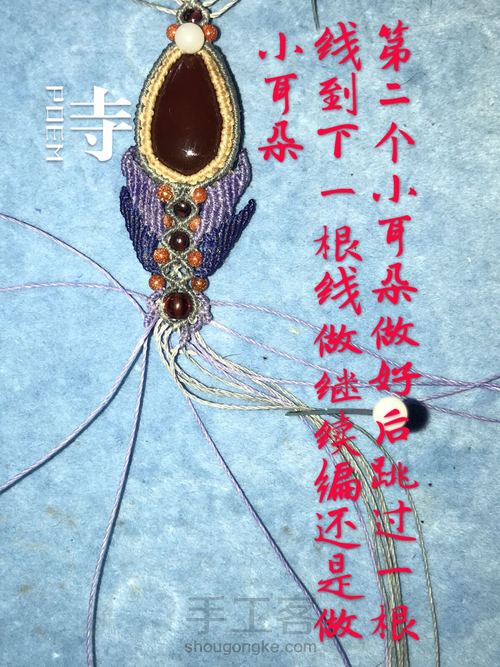 第二个小耳朵做好后跳过一根
线到下一根线做继续编还是做
小耳朵
寺
POEM
手工客
shougongke.com